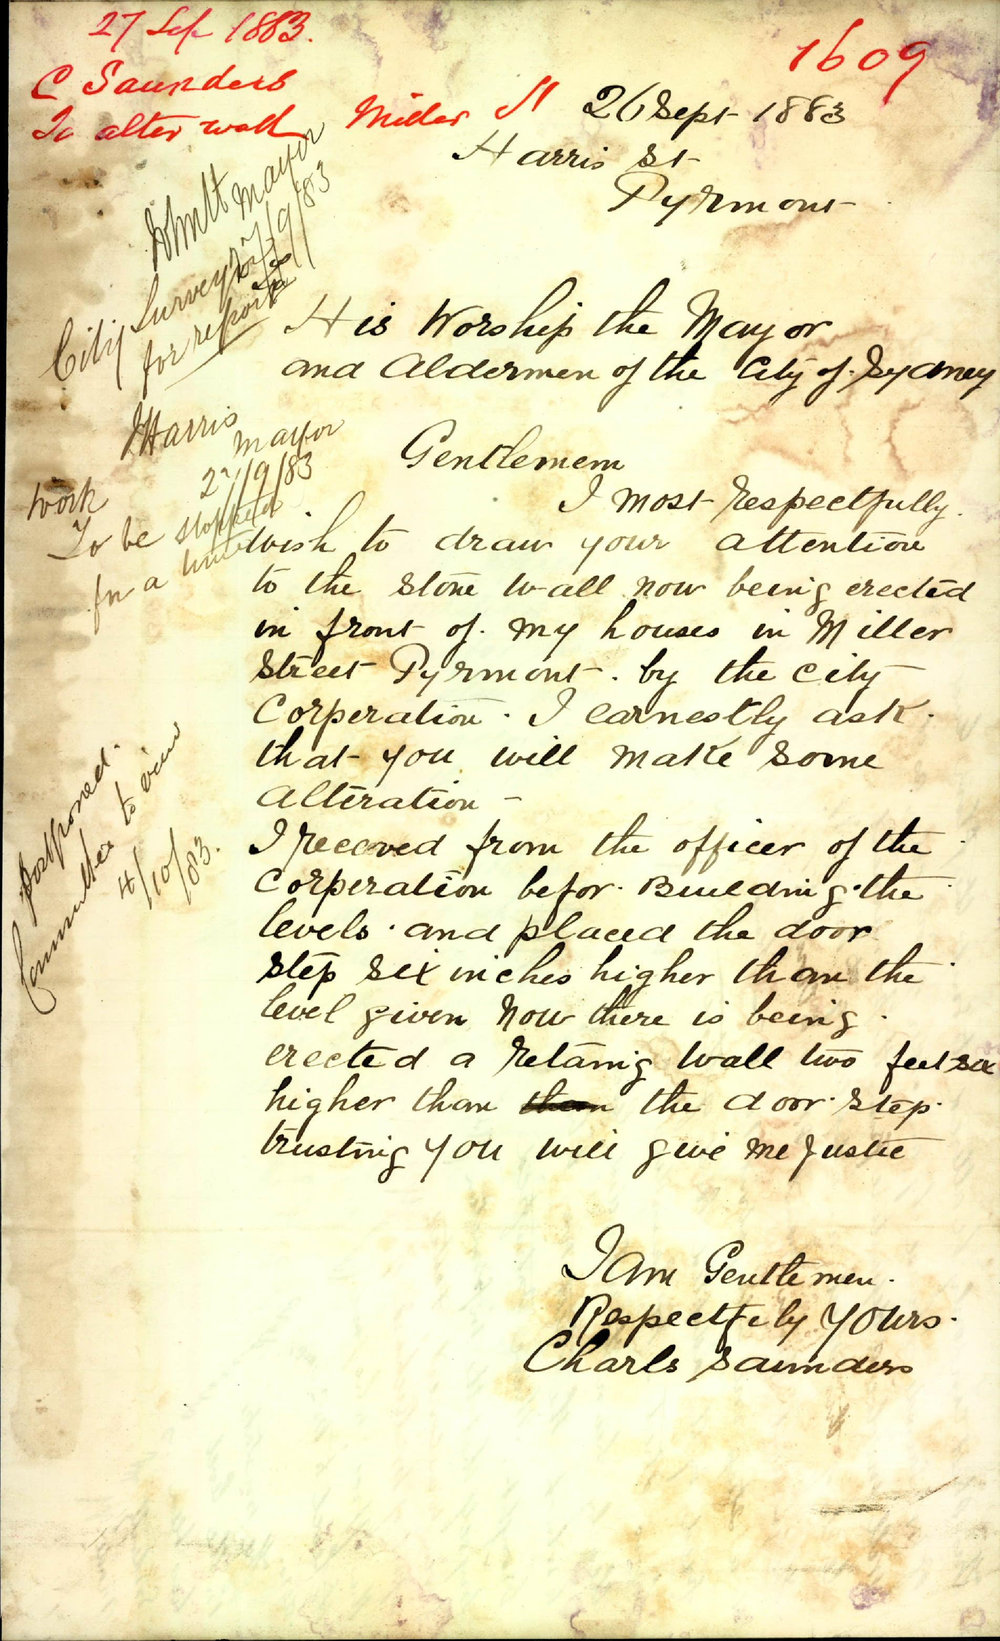 27 Sep 1883.
C Saunders
To alter wall Miller St
1609
26 Sept 1883
Harris St
Pyrmont
Mayor
27/9/83
City Surveyor
for report
JHarris
Mayor
27/9/83
Work
To be stopped
for a time
Postponed.
Committee to view
4/10/83.
His Worship the Mayor
and Aldermen of the City of Sydney
Gentlemem
I most respectfully.
wish to draw your attention
to the stone wall now being erected
in front of my houses in Miller
Street Pyrmont. by the city
Corperation. I earnestly ask.
that you will make some
alteration -
I receoved from the officer of the
Corperation befor Buelding the
levels. and placed the door
step six inches higher than the
level given Now there is being.
erected a retanig wall two feet six
higher than than the door step.
trusting you will give me Justie
I am Gentlemen.
Respectfely Yours.
Charls Saunders